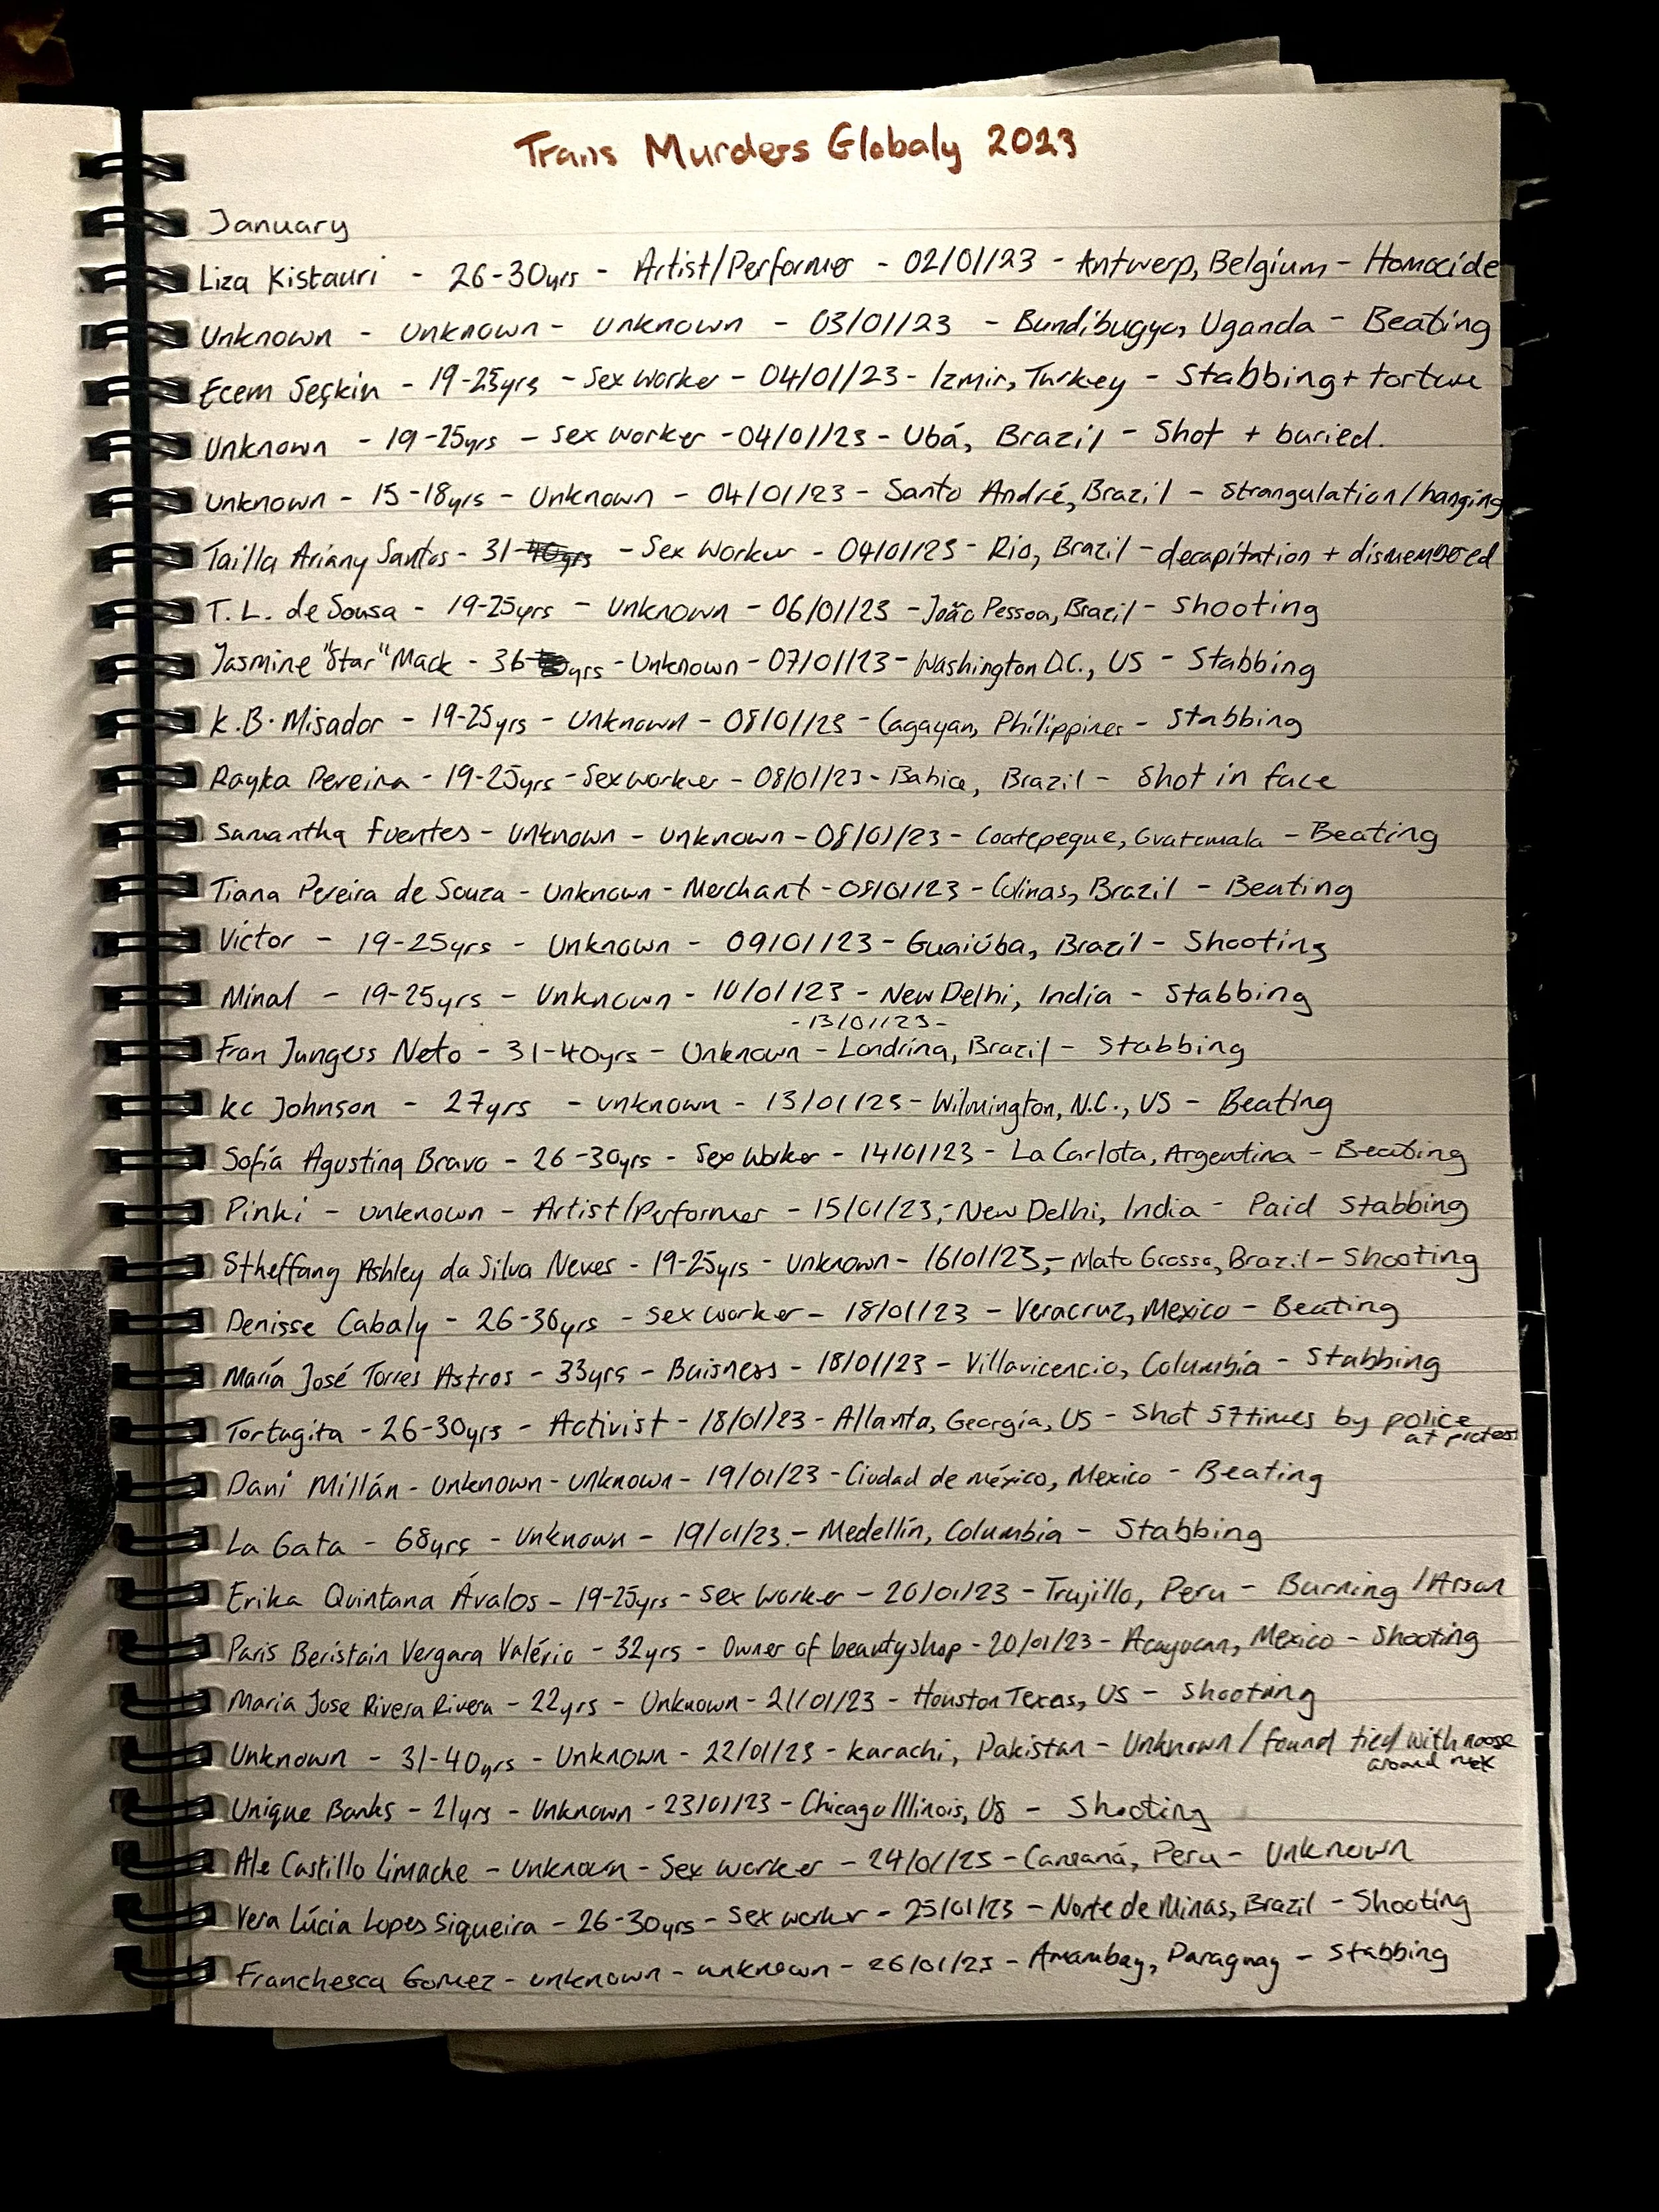 Trans Murders Globaly 2023
January
Liza Kistauri - 26-30yrs - Artist/Performer - 02/01/23 - Antwerp, Belgium - Homocide
Unknown - Unknown - Unknown - 03/01/23 - Bundibugyo, Uganda - Beating
Ecem Seçkin - 19-25yrs - Sex Worker - 04/01/23 - Izmir, Turkey - Stabbing + torture
Unknown - 19-25yrs - Sex Worker - 04/01/23 - Ubá, Brazil - Shot + buried.
Unknown - 15-18yrs - Unknown - 04/01/23 - Santo André, Brazil - Strangulation/hanging
Tailla Ariany Santos - 31 - Sex Worker - 04/01/23 - Rio, Brazil - decapitation + dismembered
T. L. de Sousa - 19-25yrs - Unknown - 06/01/23 - João Pessoa, Brazil - Shooting
Jasmine "Star" Mack - 36 yrs - Unknown - 07/01/23 - Washington D.C., US - Stabbing
K.B. Misador - 19-25yrs - Unknown - 08/01/23 - Cagayan, Philippines - Stabbing
Rayka Pereira - 19-25yrs - Sex worker - 08/01/23 - Bahica, Brazil - Shot in face
Samantha Fuentes - Unknown - Unknown - 08/01/23 - Coatepeque, Gvatemala - Beating
Tiana Pereira de Souza - Unknown - Merchant - 08/01/23 - Colinas, Brazil - Beating
Victor - 19-25yrs - Unknown - 09/01/23 - Guaiúba, Brazil - Shooting
Minal - 19-25yrs - Unknown - 10/01/23 - New Delhi, India - Stabbing
- 13/01/23 -
Fran Jungess Neto - 31-40yrs - Unknown - Londrina, Brazil - Stabbing
KC Johnson - 27yrs - unknown - 13/01/23 - Wilmington, N.C., US - Beating
Sofía Agustina Bravo - 26-30yrs - Sex Worker - 14/01/23 - La Carlota, Argentina - Beating
Pinki - unknown - Artist/Performer - 15/01/23, - New Delhi, India - Paid Stabbing
Stheffang Ashley da Silva Neves - 19-25yrs - Unknown - 16/01/23, - Mato Grosso, Brazil - Shooting
Denisse Cabaly - 26-30yrs - Sex worker - 18/01/23 - Veracruz, Mexico - Beating
María José Torres Astros - 33yrs - Buisness - 18/01/23 - Villavicencio, Columbia - Stabbing
Tortugita - 26-30yrs - Activist - 18/01/23 - Atlanta, Georgia, US - Shot 57 times by police
at protest
Dani Millán - Unknown - Unknown - 19/01/23 - Ciudad de méxico, Mexico - Beating
La Gata - 68yrs - Unknown - 19/01/23. - Medellín, Columbia - Stabbing
Erika Quintana Ávalos - 19-25yrs - Sex Worker - 20/01/23 - Trujillo, Peru - Burning /Arson
Paris Beristain Vergara Valério - 32yrs - Owner of beauty shop - 20/01/23 - Acayucan, Mexico - Shooting
Maria Jose Rivera Rivera - 22yrs - Unknown - 21/01/23 - Houston Texas, US - Shooting
Unknown - 31-40yrs - Unknown - 22/01/23 - Karachi, Pakistan - Unknown / found tied with noose
around neck
Unique Banks - 21yrs - Unknown - 23/01/23 - Chicago Illinois, US - Shooting
Ale Castillo Limache - Unknown - Sex worker - 24/01/23 - Peru - Unknown
Vera Lúcia Lopes Siqueira - 26-30yrs - Sex worker - 25/01/23 - Norte de Minas, Brazil - Shooting
Franchesca Gomez - unknown - unknown - 26/01/23 - Amambay, Paraguay - Stabbing